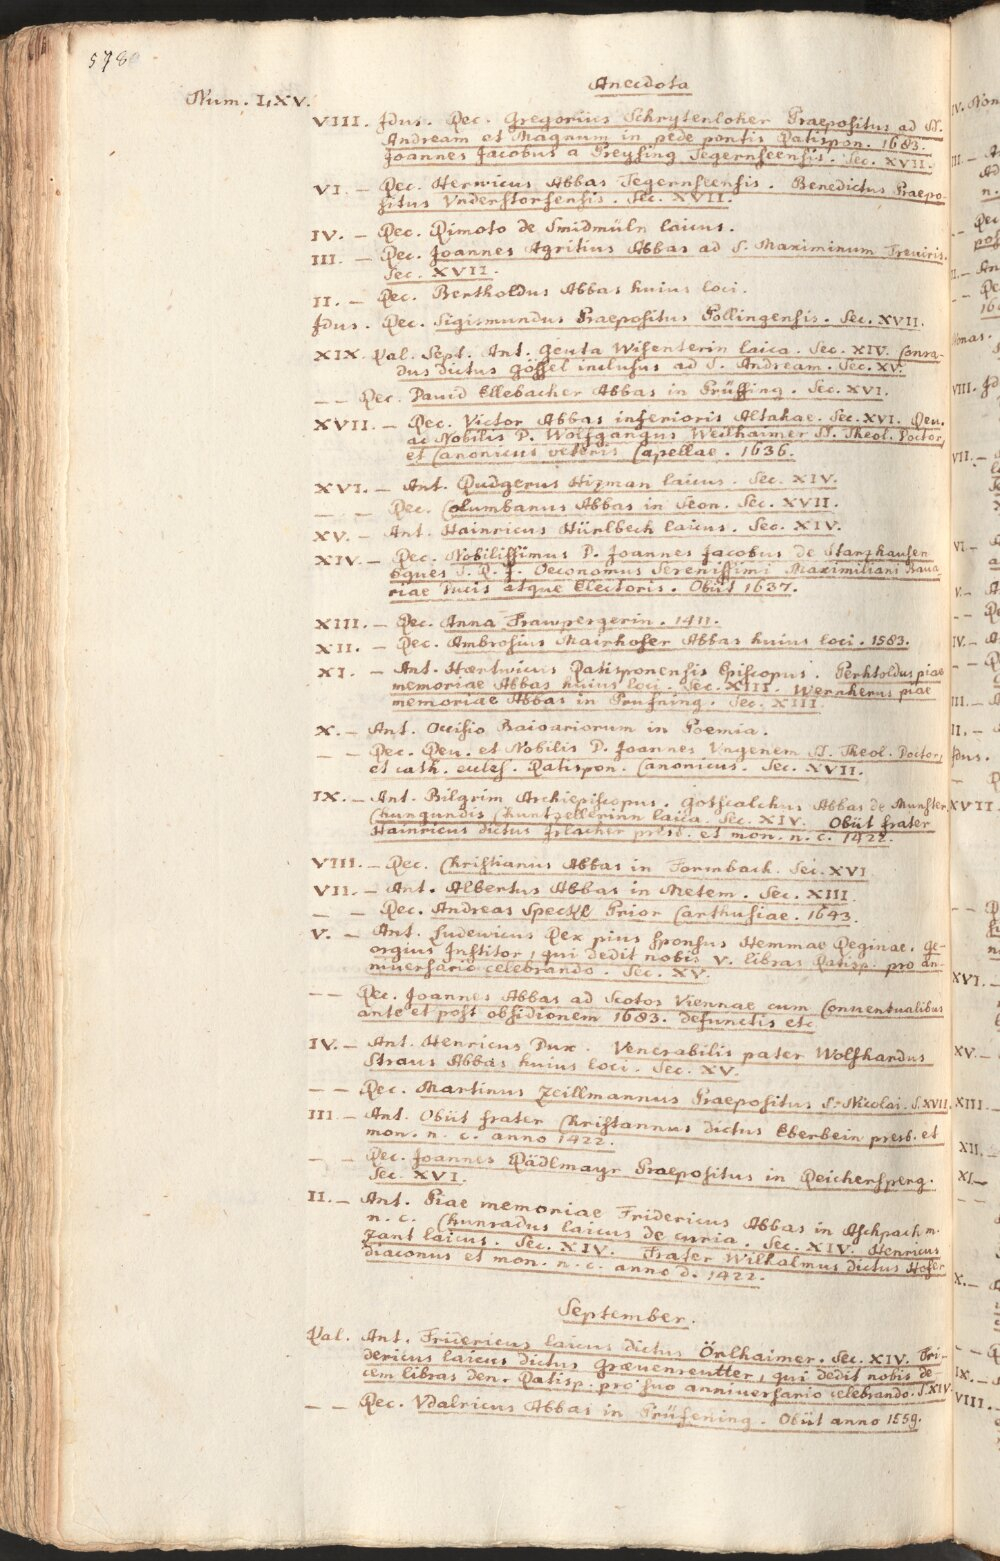 578
Anecdota
Num. LXV.
VIII. Idus. Rec. Gregorius Schrytenloher Praepositus ad SS.
Andream et Magnum in pede pontis Ratispon. 1683.
Joannes Jacobus a Preysing Tegernseensis. Sec. XVII.
VI. — Rec. Herwicus Abbas Tegernseensis. Benedictus Praepo-
situs Vnderstorfensis. Sec. XVII.
IV. — Rec. Rimoto de Smidmüln laicus.
III. — Rec. Joannes Agritius Abbas ad S. Maximinum Treuiris.
Sec. XVII.
II. — Rec. Bertholdus Abbas huius loci.
Idus. Rec. Sigismundus Praepositus Pollingensis. Sec. XVII.
XIX. Kal. Sept. Ant. Geuta Wisenterin laica. Sec. XIV. Conra-
dus dictus Gössel inclusus ad S. Andream. Sec. XV.
— — Rec. Dauid Ellebacher Abbas in Prüffing. Sec. XVI.
XVII. — Rec. Victor Abbas inferioris Altahae. Sec. XVI. Reu.
ac Nobilis D. Wolfgangus Weilhaimer SS. Theol. Doctor,
et Canonicus veteris Capellae. 1636.
XVI. — Ant. Rudgerus Hizman laicus. Sec. XIV.
— — Rec. Columbanus Abbas in Seon. Sec. XVII.
XV. — Ant. Hainricus Hürlbeck laicus. Sec. XIV.
XIV. — Rec. Nobilissimus D. Joannes Jacobus de Starzhausen
Eques S. R. I. Oeconomus Serenissimi Maximiliani Baua-
riae Ducis atque Electoris. Obiit 1637.
XIII. — Rec. Anna Frawpergerin. 1411.
XII. — Rec. Ambrosius Mairhofer Abbas huius loci. 1583.
XI. — Ant. Hartwicus Ratisponensis Episcopus. Perhtoldus piae
memoriae Abbas huius loci. Sec. XIII. Wernherus piae
memoriae Abbas in Prufning. Sec. XIII.
X. — Ant. Occisio Baioariorum in Poemia.
— Rec. Reu. et Nobilis D. Joannes Vngenem SS. Theol. Doctor,
et cath. eccles. Ratispon. Canonicus. Sec. XVII.
IX. — Ant. Bilgrim Archiepiscopus. Gotscalchus Abbas de Munster,
Chungundis Chuntzellerinn laica. Sec. XIV. Obiit frater
Hainricus dictus Irlacher presb. et mon. n. c. 1422.
VIII. — Rec. Christianus Abbas in Formbach. Sec. XVI
VII. — Ant. Albertus Abbas in Metem. Sec. XIII
— — Rec. Andreas Speckl Prior Carthusiae. 1643.
V. — Ant. Ludewicus Rex pius sponsus Hemmae Reginae. Ge-
orgius Institor, qui dedit nobis V. libras Ratisp. pro an-
niuersario celebrando. Sec. XV.
— — Rec. Joannes Abbas ad Scotos Viennae cum Conuentualibus
ante et post obsidionem 1683. defunctis etc
IV. — Ant. Henricus Dux. Venerabilis pater Wolfhardus
Straus Abbas huius loci. Sec. XV.
— — Rec. Martinus Zeillmannus Praepositus S. Nicolai. S. XVII.
III. — Ant. Obiit frater Christannus dictus Eberbein presb. et
mon. n. c. anno 1422.
— — Rec. Joannes Rädlmayr Praepositus in Reichersperg.
Sec. XVI.
II. — Ant. Piae memoriae Fridericus Abbas in Aschpach m.
n. c. Chunradus laicus de curia. Sec. XIV. Henricus
Zant laicus. Sec. XIV. Frater Wilhalmus dictus Hofer
diaconus et mon. n. c. anno d. 1422.
September.
Kal. Ant. Fridericus laicus dictus Örlhaimer. Sec. XIV. Fri-
dericus laicus dictus Græuenreutter, qui dedit nobis de-
cem libras den. Ratisp. pro suo anniuersario celebrando. S. XIV.
— — Rec. Vdalricus Abbas in Prüfening. Obiit anno 1559.